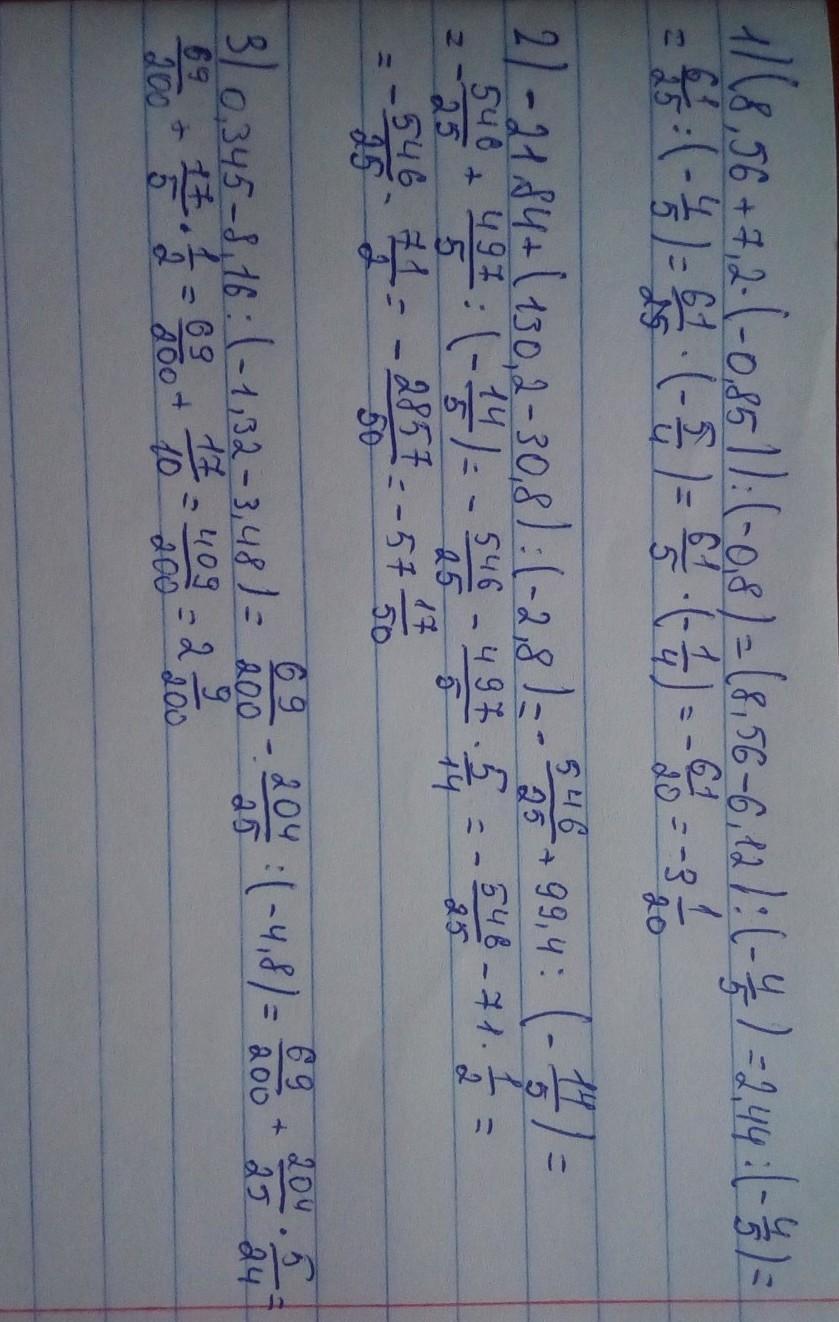 1) (8,56+7,2·(-0,85)):(-0,8)=(8,56-6,12):(-4/5)=2,44:(-4/5)=
=61/25:(-4/5)=61/25·(-5/4)=61/5·(-1/4)=-61/20=-3 1/20
2) -21,84+(130,2-30,8):(-2,8)=-546/25+99,4:(-14/5)=
=-546/25+497/5:(-14/5)=-546/25-497/5·5/14=-546/25-71·1/2=
=-546/25-71/2=-2857/50=-57 17/50
3) 0,345-8,16:(-1,32-3,48)=69/200-204/25:(-4,8)=69/200+204/25·5/24=
69/200+17/5·1/2=69/200+17/10=409/200=2 9/200